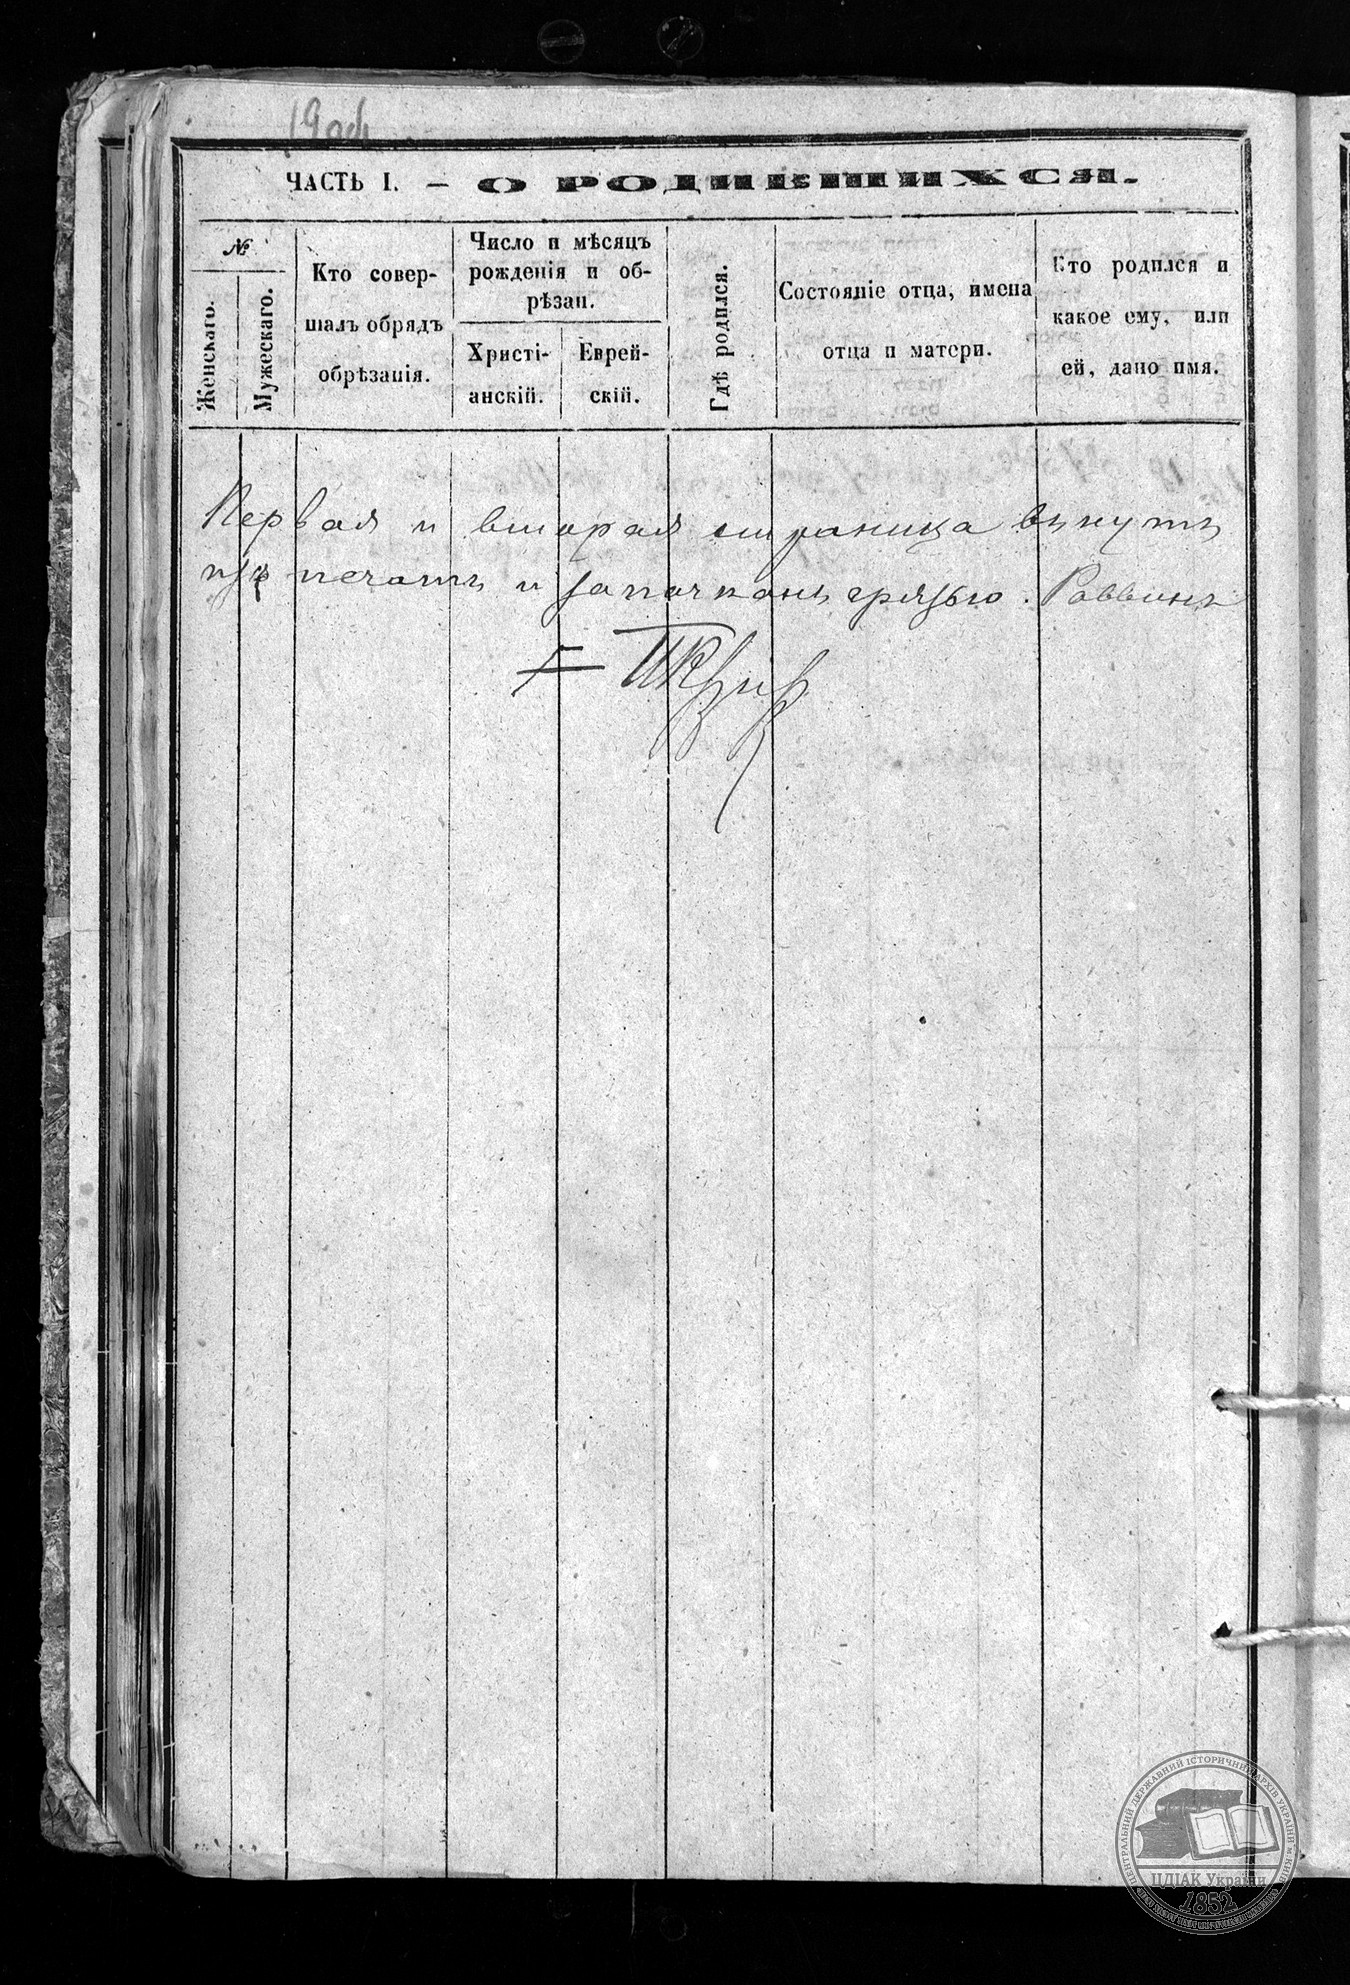 ЧАСТЬ I. — О РОДИВШИХСЯ.
№
Женскаго.
Мужескаго.
Кто совер-
шалъ обрядъ
обрѣзанія.
Число и мѣсяцъ
рожденія и об-
рѣзан.
Христі-
анскій.
Еврей-
скій.
Гдѣ родился.
Состояніе отца, имена
отца и матери.
Кто родился и
какое ему, или
ей, дано имя.
Первая и вторая страница вынуты
изъ печати и запачканы грязью. Раввинъ
ЦЕНТРАЛЬНИЙ ДЕРЖАВНИЙ ІСТОРИЧНИЙ АРХІВ УКРАЇНИ м. КИЇВ
ЦДІАК України
1852